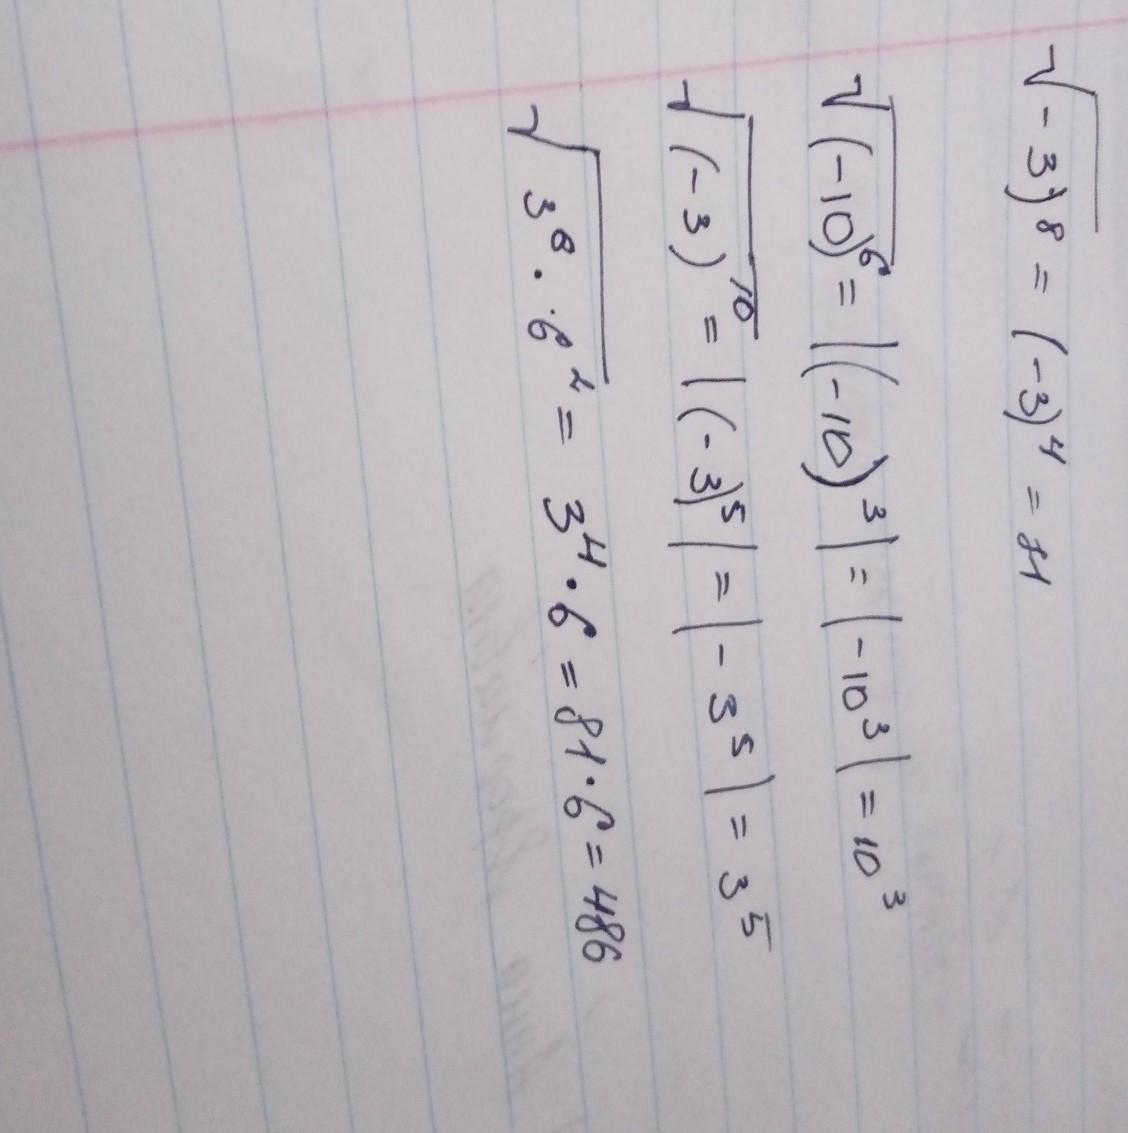 √-3)⁸ = (-3)⁴ = 81
√(-10)⁶ = |(-10)³| = |-10³| = 10³
√(-3)¹⁰ = |(-3)⁵| = |-3⁵| = 3⁵
√3⁸ · 6² = 3⁴ · 6 = 81 · 6 = 486